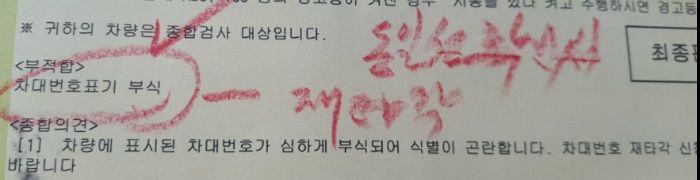 경우 시동을 껐다 켜고 수행하시면 경고등
※ 귀하의 차량은 종합검사 대상입니다.
최종판
<부적합>
차대번호표기 부식
재타각
<종합의견>
[1] 차량에 표시된 차대번호가 심하게 부식되어 식별이 곤란합니다. 차대번호 재타각 신청
바랍니다